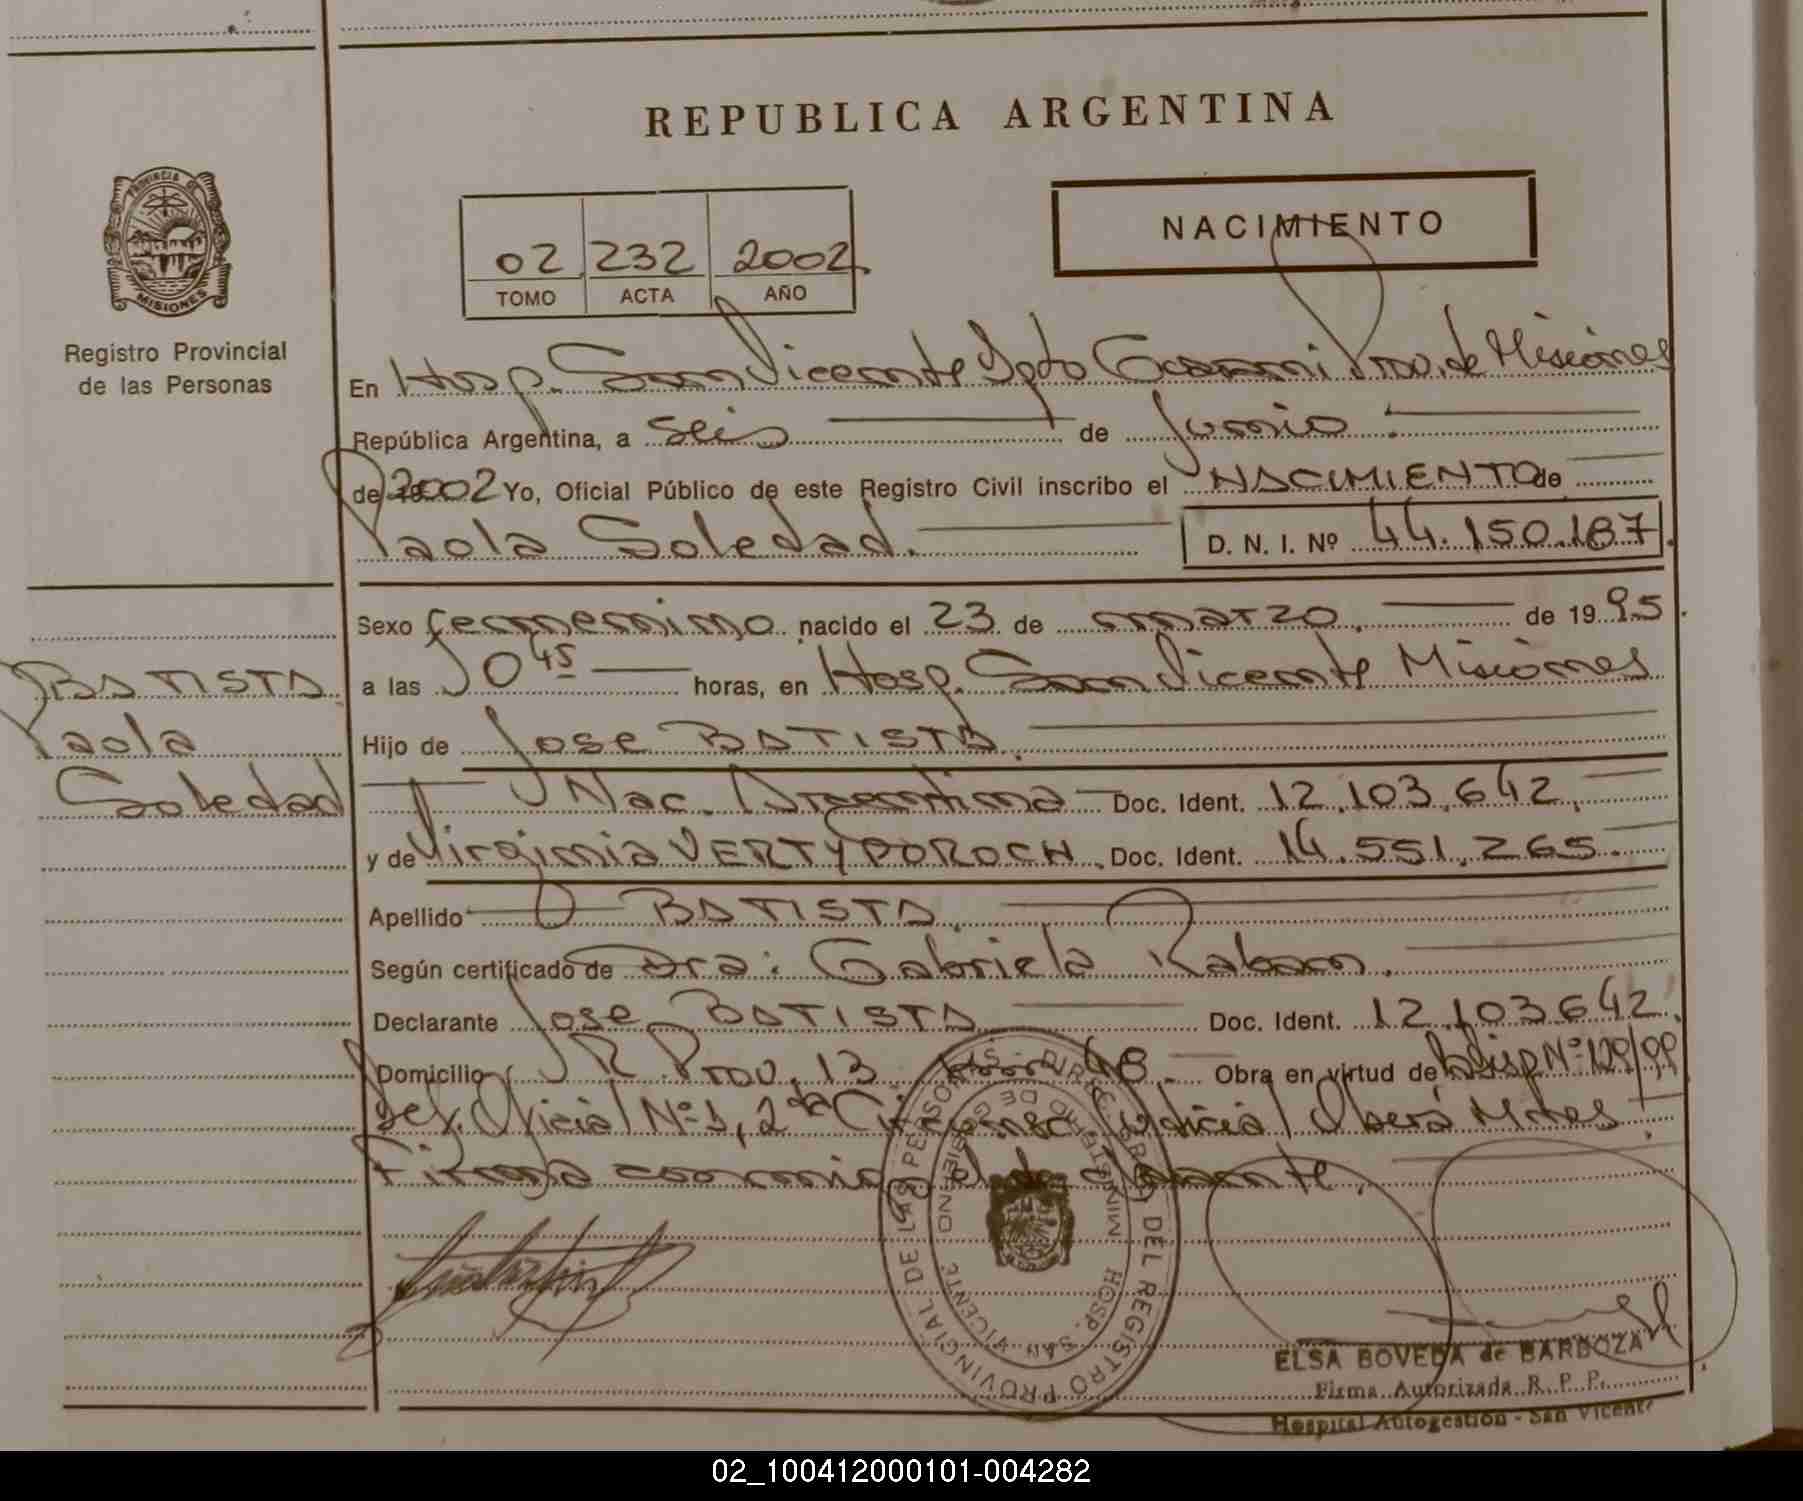 REPUBLICA ARGENTINA
PROVINCIA DE MISIONES
Registro Provincial
de las Personas
02 232 2002
TOMO ACTA AÑO
NACIMIENTO
En Hosp. San Vicente Dpto Guaraní Prov. de Misiones
República Argentina, a seis de Junio
de 2002 Yo, Oficial Público de este Registro Civil inscribo el NACIMIENTO de
Paola Soledad. D. N. I. Nº 44.150.187
Sexo femenino nacido el 23 de marzo. de 1995
a las 0 45 horas, en Hosp. San Vicente Misiones
Hijo de Jose BATISTA.
Nac. Argentina Doc. Ident. 12.103.642.
y de Virginia VERTYPOROCH. Doc. Ident. 14.551.265.
Apellido BATISTA.
Según certificado de Dra: Gabriela Raban.
Declarante Jose BATISTA Doc. Ident. 12.103642.
Domicilio R Prov. 13 km 48. Obra en virtud de Disp Nº 129/99
Def. Oficial Nº 1, 2da Circunsc Judicial Oberá Mnes.
Firma conmigo el declarante.
BATISTA
Paola
Soledad
DIREC. GRAL. DEL REGISTRO PROVINCIAL DE LAS PERSONAS
MINISTERIO DE GOBIERNO
HOSP. SAN VICENTE
ELSA BOVEDA de BARBOZA
Firma Autorizada R. P. P.
Hospital Autogestión - San Vicente
02_100412000101-004282